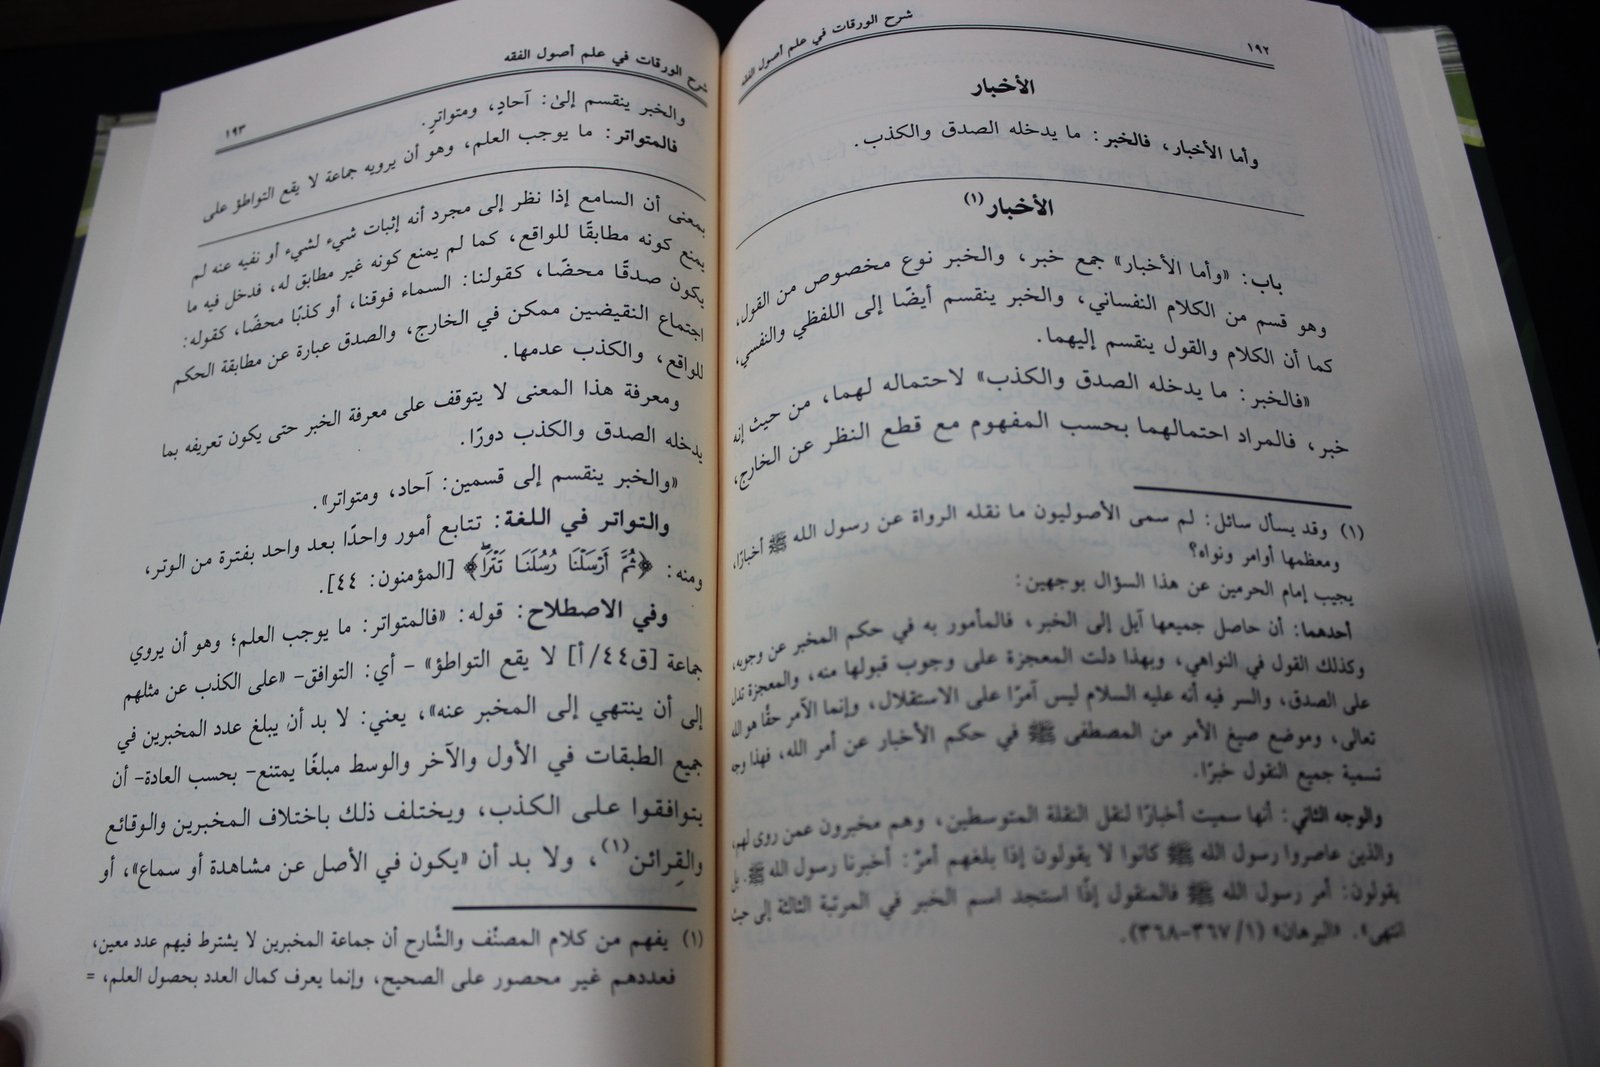 ١٩٢
شرح الورقات في علم أصول الفقه
الأخبار
وأما الأخبار، فالخبر: ما يدخله الصدق والكذب.
الأخبار(١)
باب: «وأما الأخبار» جمع خبر، والخبر نوع مخصوص من القول،
وهو قسم من الكلام النفساني، والخبر ينقسم أيضًا إلى اللفظي والنفسي،
كما أن الكلام والقول ينقسم إليهما.
«فالخبر: ما يدخله الصدق والكذب» لاحتماله لهما، من حيث إنه
خبر، فالمراد احتمالهما بحسب المفهوم مع قطع النظر عن الخارج،
(١) وقد يسأل سائل: لم سمى الأصوليون ما نقله الرواة عن رسول الله ﷺ أخبارًا،
ومعظمها أوامر ونواه؟
يجيب إمام الحرمين عن هذا السؤال بوجهين:
أحدهما: أن حاصل جميعها آيل إلى الخبر، فالمأمور به في حكم المخبر عن وجوبه،
وكذلك القول في النواهي، وبهذا دلت المعجزة على وجوب قبولها منه، والمعجزة تدل
على الصدق، والسر فيه أنه عليه السلام ليس آمرًا على الاستقلال، وإنما الآمر حقًا هو الله
تعالى، وموضع صيغ الأمر من المصطفى ﷺ في حكم الأخبار عن أمر الله، فهذا وجه
تسمية جميع النقول خبرًا.
والوجه الثاني: أنها سميت أخبارًا لنقل النقلة المتوسطين، وهم مخبرون عمن روى لهم،
والذين عاصروا رسول الله ﷺ كانوا لا يقولون إذا بلغهم أمرٌ: أخبرنا رسول الله ﷺ. بل
يقولون: أمر رسول الله ﷺ فالمنقول إذًا استجد اسم الخبر في المرتبة الثالثة إلى حيث
انتهى». «البرهان» (١/ ٣٦٧-٣٦٨).
شرح الورقات في علم أصول الفقه
١٩٣
والخبر ينقسم إلى: آحادٍ، ومتواترٍ.
فالمتواتر: ما يوجب العلم، وهو أن يرويه جماعة لا يقع التواطؤ على
بمعنى أن السامع إذا نظر إلى مجرد أنه إثبات شيء لشيء أو نفيه عنه لم
يمنع كونه مطابقًا للواقع، كما لم يمنع كونه غير مطابق له، فدخل فيه ما
يكون صدقًا محضًا، كقولنا: السماء فوقنا، أو كذبًا محضًا، كقوله:
اجتماع النقيضين ممكن في الخارج، والصدق عبارة عن مطابقة الحكم
للواقع، والكذب عدمها.
ومعرفة هذا المعنى لا يتوقف على معرفة الخبر حتى يكون تعريفه بما
يدخله الصدق والكذب دورًا.
«والخبر ينقسم إلى قسمين: آحاد، ومتواتر».
والتواتر في اللغة: تتابع أمور واحدًا بعد واحد بفترة من الوتر،
ومنه: ﴿ثُمَّ أَرْسَلْنَا رُسُلَنَا تَتْرَا﴾ [المؤمنون: ٤٤].
وفي الاصطلاح: قوله: «فالمتواتر: ما يوجب العلم؛ وهو أن يروي
جماعة [ق٤٤/ أ] لا يقع التواطؤ» - أي: التوافق- «على الكذب عن مثلهم
إلى أن ينتهي إلى المخبر عنه»، يعني: لا بد أن يبلغ عدد المخبرين في
جميع الطبقات في الأول والآخر والوسط مبلغًا يمتنع- بحسب العادة- أن
يتوافقوا على الكذب، ويختلف ذلك باختلاف المخبرين والوقائع
والقِرائن(١)، ولا بد أن «يكون في الأصل عن مشاهدة أو سماع»، أو
(١) يفهم من كلام المصنِّف والشَّارح أن جماعة المخبرين لا يشترط فيهم عدد معين،
فعددهم غير محصور على الصحيح، وإنما يعرف كمال العدد بحصول العلم، =